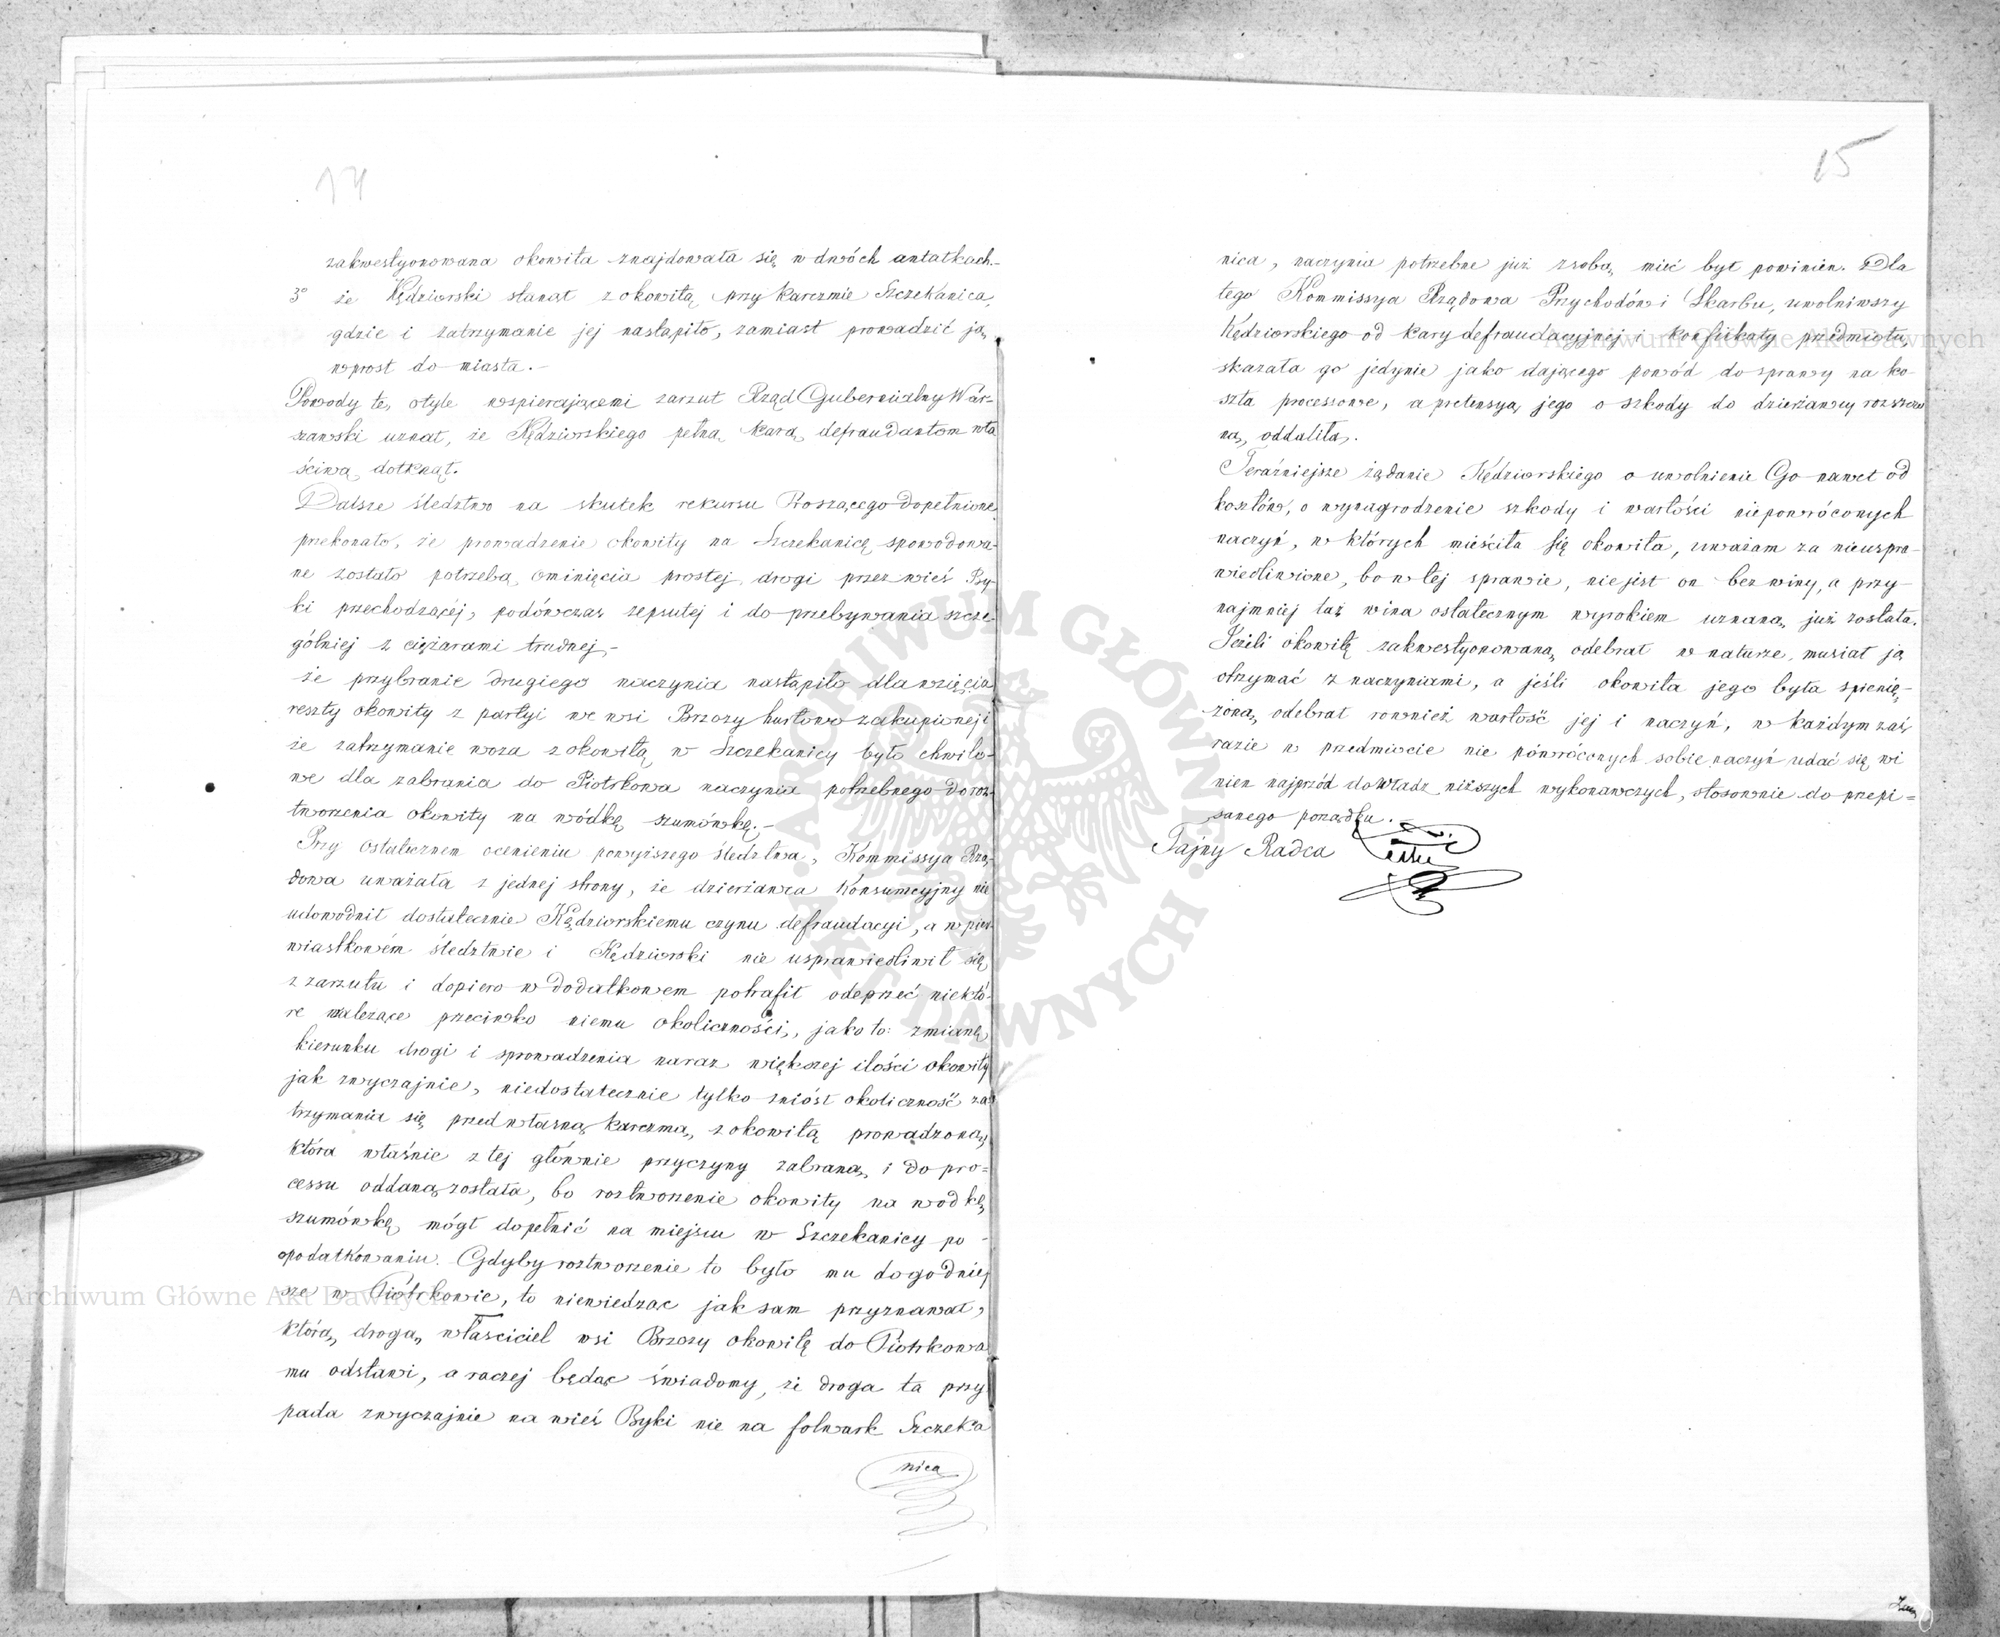 14
zakwestyonowana okowita znajdowała się w dwóch antałkach.-
3° że Kędziorski stanął z okowitą przy karczmie Szczekanica,
gdzie i zatrzymanie jej nastąpiło, zamiast prowadzić ją
wprost do miasta.-
Powody te, otyle wspierającemi zarzut Rząd Gubernialny War-
szawski uznał, że Kędziorskiego pełną karą defraudantom wła
ściwą dotknął.
Dalsze śledztwo na skutek rekursu Proszącego dopełnione
przekonało, że prowadzenie okowity na Szczekanicę spowodowa-
ne zostało potrzebą ominięcia prostej drogi przez wieś By-
ki przechodzącej, podówczas zepsutej i do przebywania szcze-
gólniej z ciężarami trudnej,-
że przybranie drugiego naczynia nastąpiło dla wzięcia
reszty okowity z partyi we wsi Brzozy hurtowo zakupionej i
że zatrzymanie woza z okowitą w Szczekanicy było chwilo-
we dla zabrania do Piotrkowa naczynia potrzebnego do roz-
tworzenia okowity na wódkę szumówkę.-
Przy ostatecznem ocenieniu powyższego śledztwa, Kommissya Rzą-
dowa uważała z jednej strony, że dzierżawca Konsumcyjny nie
udowodnił dostatecznie Kędziorskiemu czynu defraudacyi, a w pier-
wiastkowém śledztwie i Kędziorski nie usprawiedliwił się
z zarzutu i dopiero w dodatkowem potrafił odeprzeć niektó-
re walczące przeciwko niemu okoliczności, jako to: zmianę
kierunku drogi i sprowadzenia naraz większej ilości okowity
jak zwyczajnie, niedostatecznie tylko zniósł okoliczność za
trzymania się przed własną karczmą, z okowitą prowadzoną,
która właśnie z tej głównie przyczyny zabraną, i do pro=
cessu oddaną została, bo roztworzenie okowity na wódkę
szumówkę mógł dopełnić na miejscu w Szczekanicy po -
opodatkowaniu. Gdyby roztworzenie to było mu dogodniej
sze w Piotrkowie, to niewiedząc jak sam przyznawał,
którą drogą właściciel wsi Brzozy okowitę do Piotrkowa
mu odstawi, a raczej będąc świadomy, że droga ta przy
pada zwyczajnie na wieś Byki nie na folwark Szczeka
nica
15
nica, naczynia potrzebne już z sobą mieć był powinien. Dla
tego Kommissya Rządowa Przychodów i Skarbu, uwolniwszy
Kędziorskiego od kary defraudacyjnej i konfiskaty przedmiotu,
skazała go jedynie jako dającego powód do sprawy na ko-
szta processowe, a pretensyą jego o szkody do dzierżawcy rozszczo
ną, oddaliła.
Teraźniejsze żądanie Kędziorskiego o uwolnienie Go nawet od
kosztów, o wynagrodzenie szkody i wartości niepowróconych
naczyń, w których mieściła się okowita, uważam za nieuspra-
wiedliwione, bo w tej sprawie, nie jest on bez winy, a przy-
najmniej taż wina ostatecznym wyrokiem uznaną już została.
Jeżeli okowitę zakwestyonowaną odebrał w naturze, musiał ją
otrzymać z naczyniami, a jeśli okowita jego była spienię-
żoną, odebrał również wartość jej i naczyń, w każdym zaś
razie w przedmiocie nie powróconych sobie naczyń udać się wi
nien najprzód do Władz niższych wykonawczych, stosownie do przepi=
sanego porządku.-
Tajny Radca
Archiwum Główne Akt Dawnych
Archiwum Główne Akt Dawnych
ARCHIWUM GŁÓWNE AKT DAWNYCH